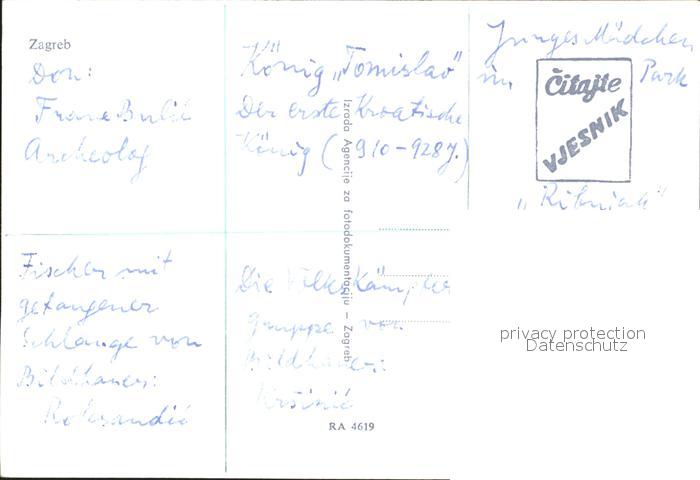 Zagreb
Don:
Frane Bulić
Archeolog
König „Tomislav"
Der erste Kroatische
König (910-928 J.)
Junges Mädchen
im Park
„Ribnjak"
Čitajte
VJESNIK
Fischer mit
gefangener
Schlange von
Bildhauer:
Rosandić
Die Volkskämpfer
gruppe von
Bildhauer:
Kršinić
Izrada Agencije za fotodokumentaciju — Zagreb
RA 4619
privacy protection
Datenschutz